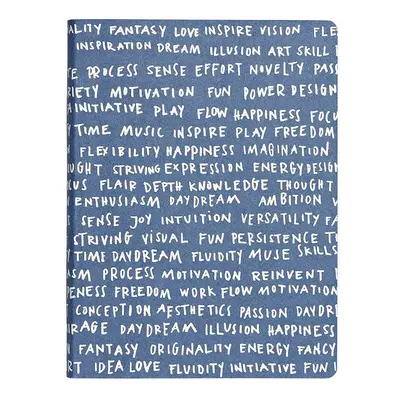 ALITY FANTASY LOVE INSPIRE VISION FLE
INSPIRATION DREAM ILLUSION ART SKILL
TE PROCESS SENSE EFFORT NOVELTY PAS
RIETY MOTIVATION FUN POWER DESIGN
A INITIATIVE PLAY FLOW HAPPINESS FOCU
Y TIME MUSIC INSPIRE PLAY FREEDOM
FLEXIBILITY HAPPINESS IMAGINATION
UGHT STRIVING EXPRESSION ENERGY DESIGN
CUS FLAIR DEPTH KNOWLEDGE THOUGHT
ENTHUSIASM DAYDREAM AMBITION V
SENSE JOY INTUITION VERSATILITY FA
STRIVING VISUAL FUN PERSISTENCE TO
Y TIME DAYDREAM FLUIDITY MUSE SKILLS
ASM PROCESS MOTIVATION REINVENT
PENESS FREEDOM WORK FLOW MOTIVATION
CONCEPTION AESTHETICS PASSION DAYDR
URAGE DAYDREAM ILLUSION HAPPINESS
N FANTASY ORIGINALITY ENERGY FANCY
RT IDEA LOVE FLUIDITY INITIATIVE FUN I